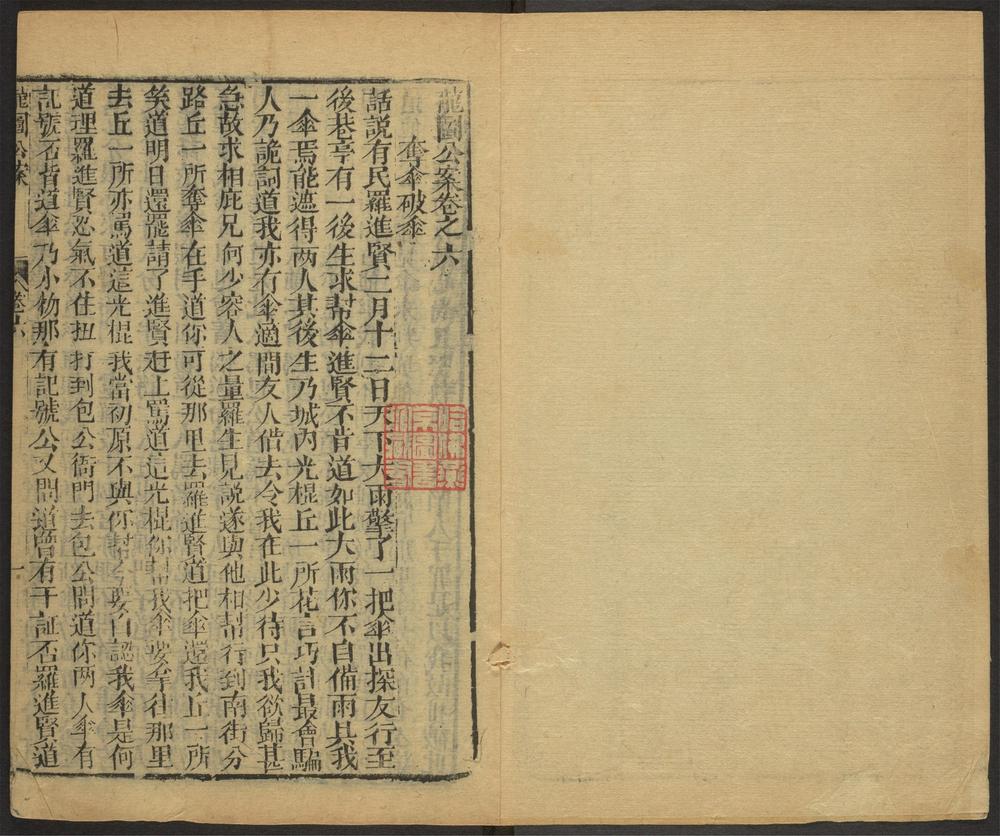 龍圖公案卷之六
奪傘破傘
話說有民羅進賢二月十二日天下大雨擎了一把傘出探友行至
後巷亭有一後生求幇傘進賢不肯道如此大雨你不自備雨具我
一傘焉能遮得两人其後生乃城内光棍丘一所花言巧計最會騙
人乃詭詞道我亦有傘適間友人借去令我在此少待只我欲歸甚
急故求相庇兄何少容人之量羅生見說遂與他相幇行到南街分
路丘一所奪傘在手道你可從那里去羅進賢道把傘還我丘一所
笑道明日還罷請了進賢赶上罵道這光棍你幇我傘要拿往那里
去丘一所亦罵道這光棍我當初原不與你幇今要自認我傘是何
道理羅進賢忍氣不住扭打到包公衙門去包公問道你两人傘有
記號否皆道傘乃小物那有記號公又問道曾有干証否羅進賢道
龍圖公案
卷六
一